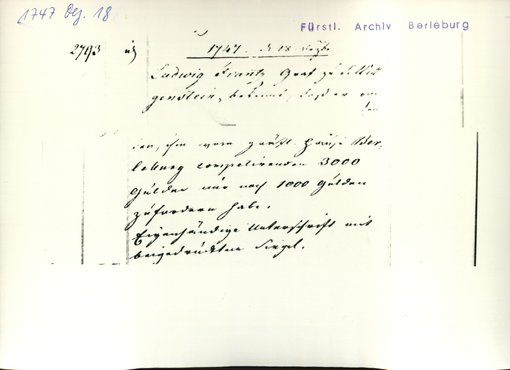 1747 Dez. 18
Fürstl. Archiv Berleburg
2793
1747. d. 18 Dezbr
Ludwig Frantz Graf zu S. Witt
genstein, bekennt, daß er an
den
ihm vom gräfl. Hause Ber-
leburg competirenden 3000
Gulden nur noch 1000 Gulden
zufordern habe.
Eigenhändige Unterschrift mit
beigedrücktem Siegel.